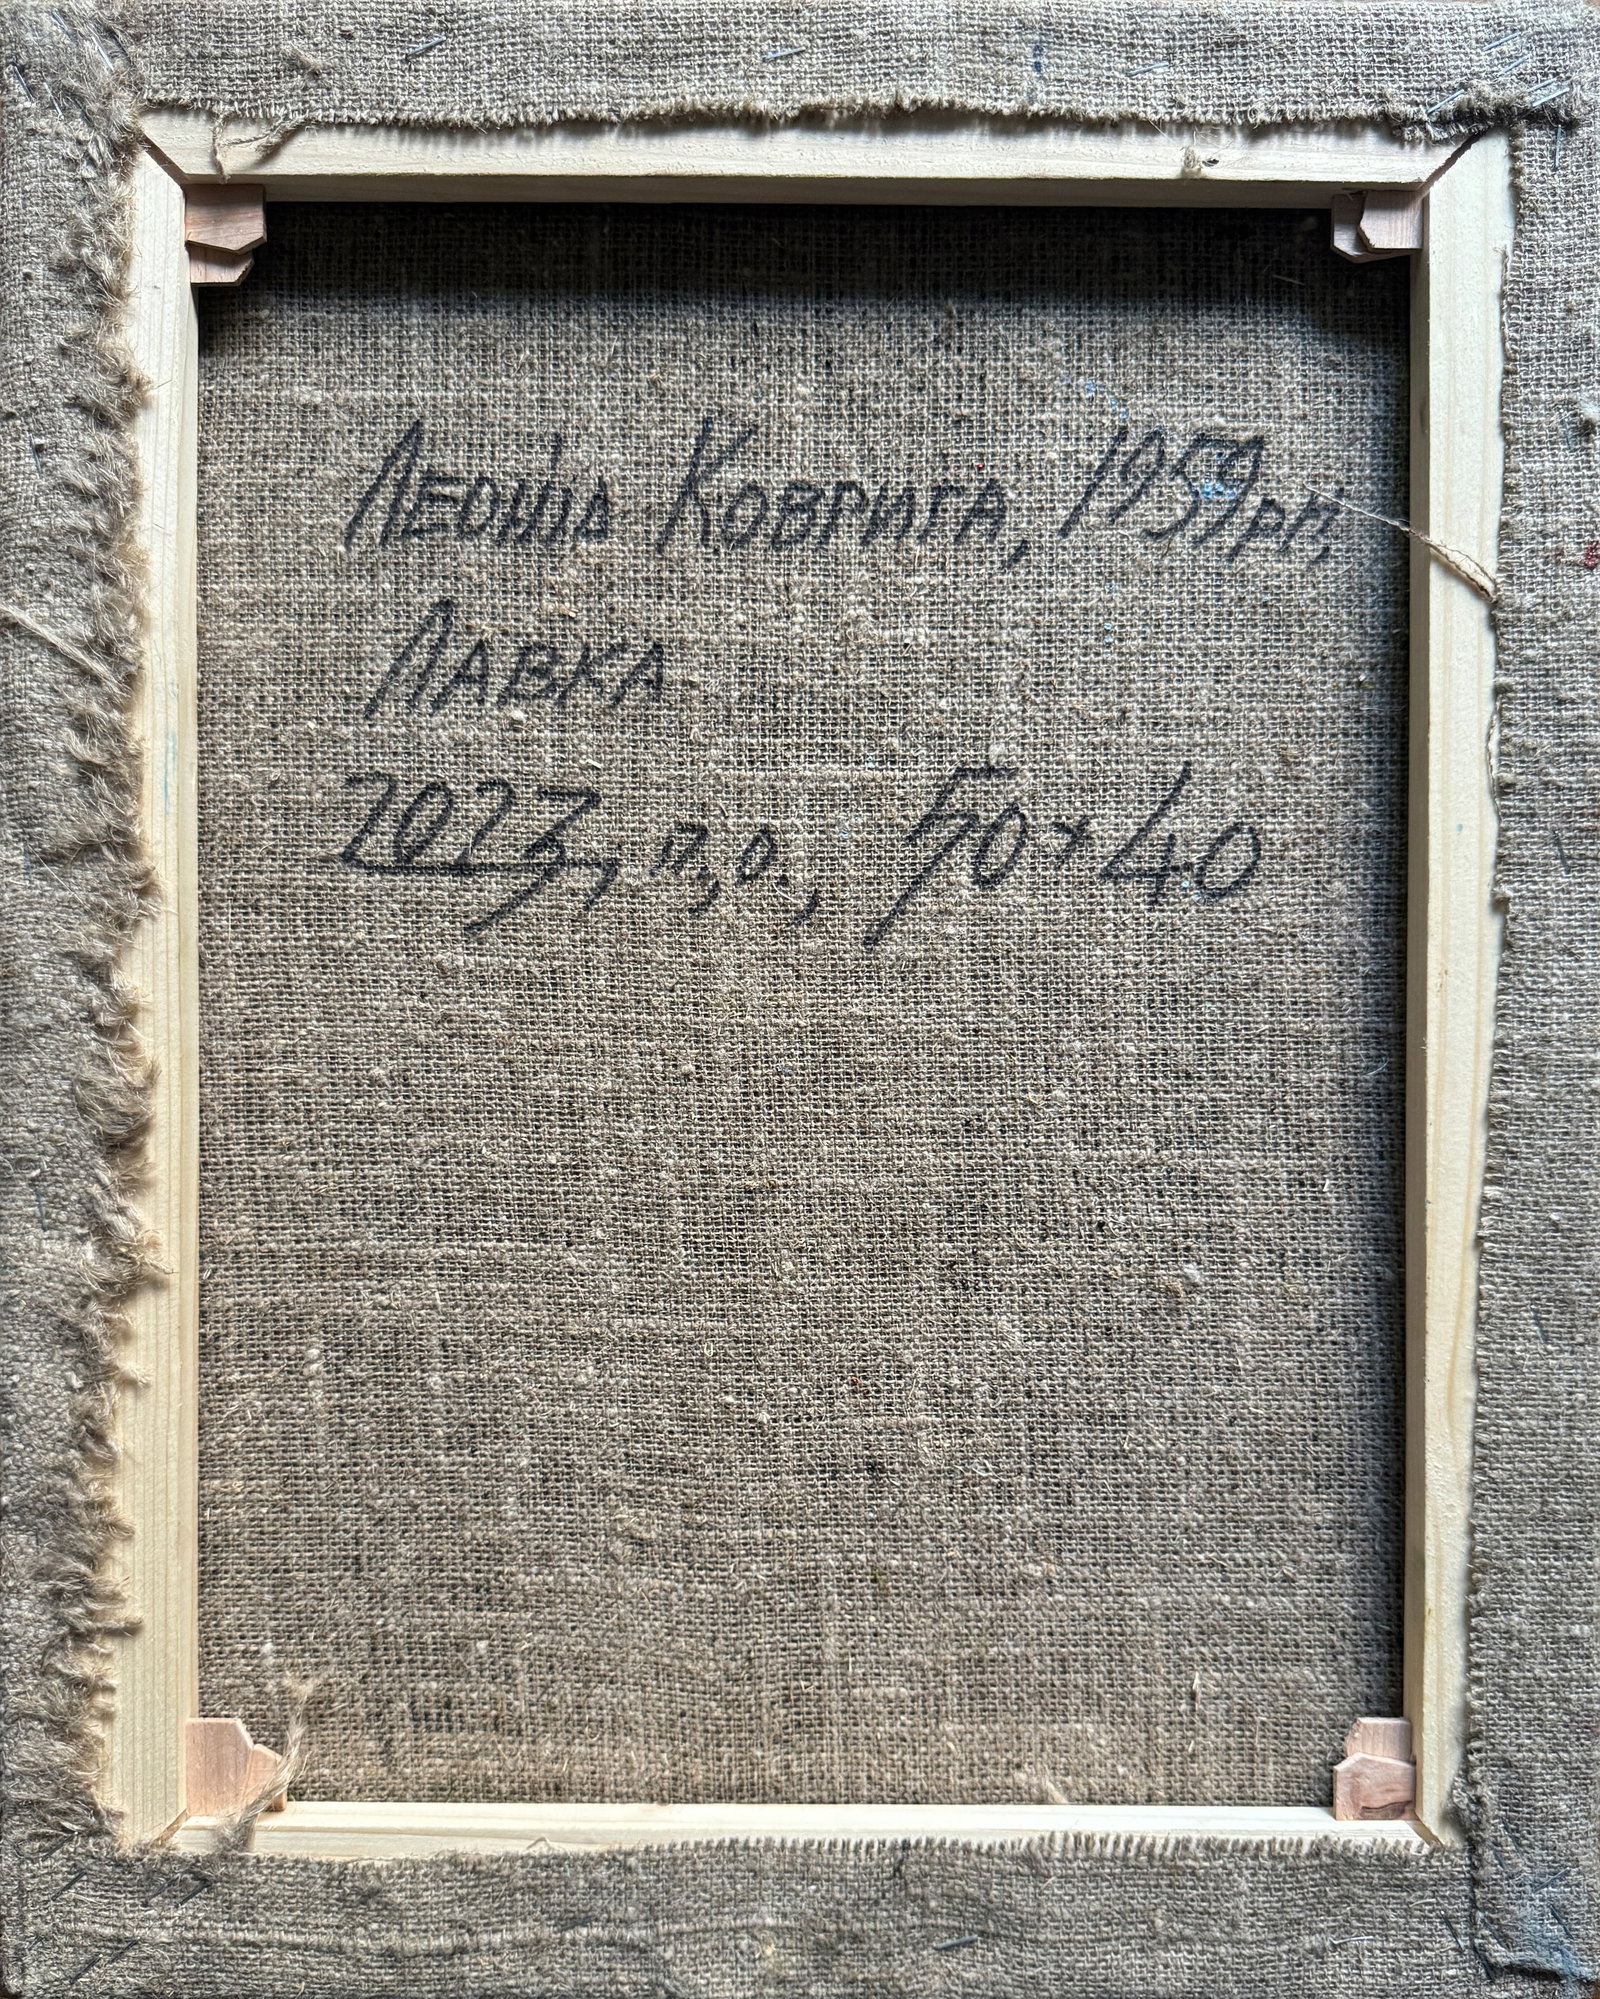 Леонід Коврига, 1959 р.н.
Лавка
2023, п,о., 50×40